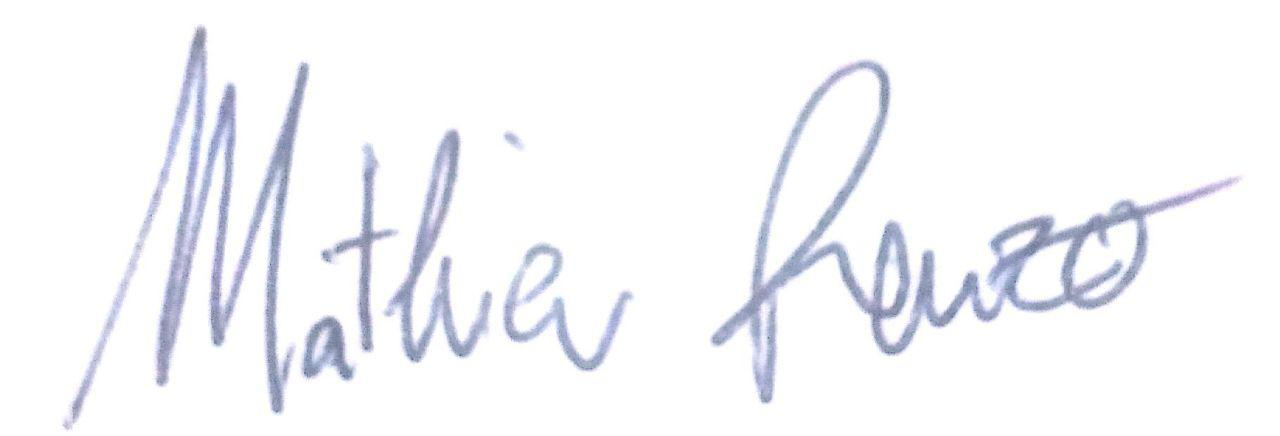 Mathieu Renzo